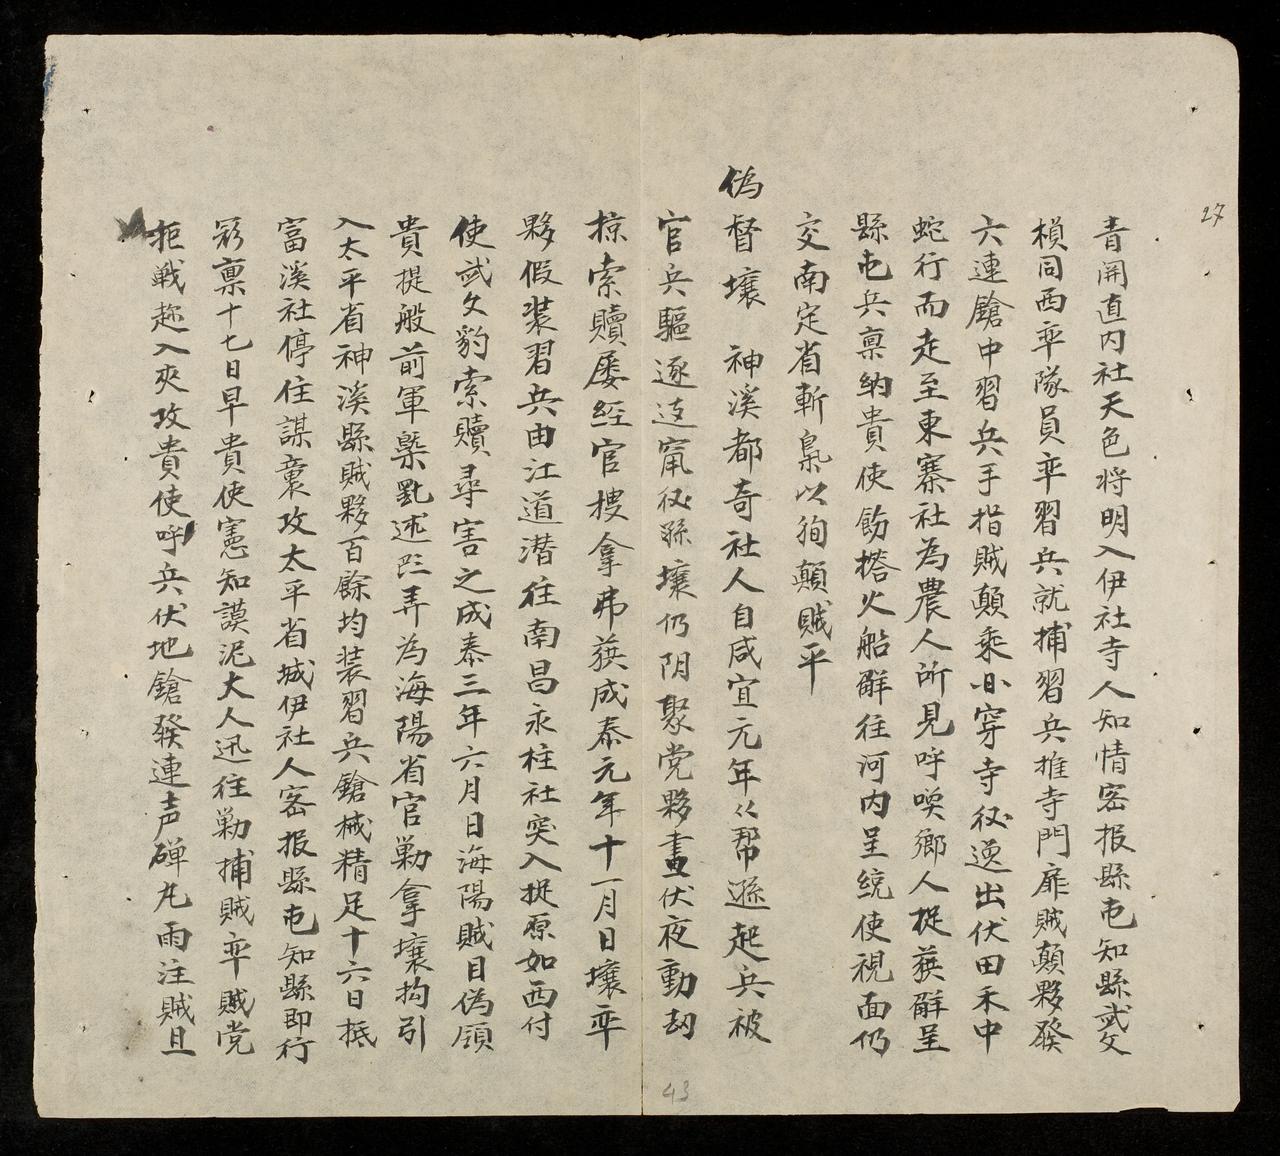 27
青開直内社天色将明入伊社寺人知情密报縣屯知縣武文
楨同西率隊員率習兵就捕習兵推寺門扉賊顛夥發
六連鎗中習兵手指賊顛乘間穿寺後逸出伏田禾中
蛇行而走至東寨社為農人所見呼喚鄉人捉獲觧呈
縣屯兵禀納貴使飭搭火船觧往河内呈統使視面仍
交南定省斬梟以徇顛賊平
偽督壤 神溪都奇社人自咸宜元年从帮遜起兵被
官兵驅逐迯竄後縣壤仍阴聚党夥晝伏夜動刧
掠索贖屡經官搜拿弗獲成泰元年十一月日壤率
夥假装習兵由江道潜往南昌永柱社突入捉原如西付
使武文豹索贖尋害之成泰三年六月日海陽賊目偽領
貴提般前軍槩 述 弄為海陽省官勦拿壤拘引
入太平省神溪縣賊夥百餘均装習兵鎗械精足十六日抵
富溪社停住謀襲攻太平省城伊社人密报縣屯知縣即行
彩禀十七日早貴使憲知謨泥大人迅往勦捕賊率賊党
拒戰趂入夾攻貴使呼兵伏地鎗發連声磾丸雨注賊且
43